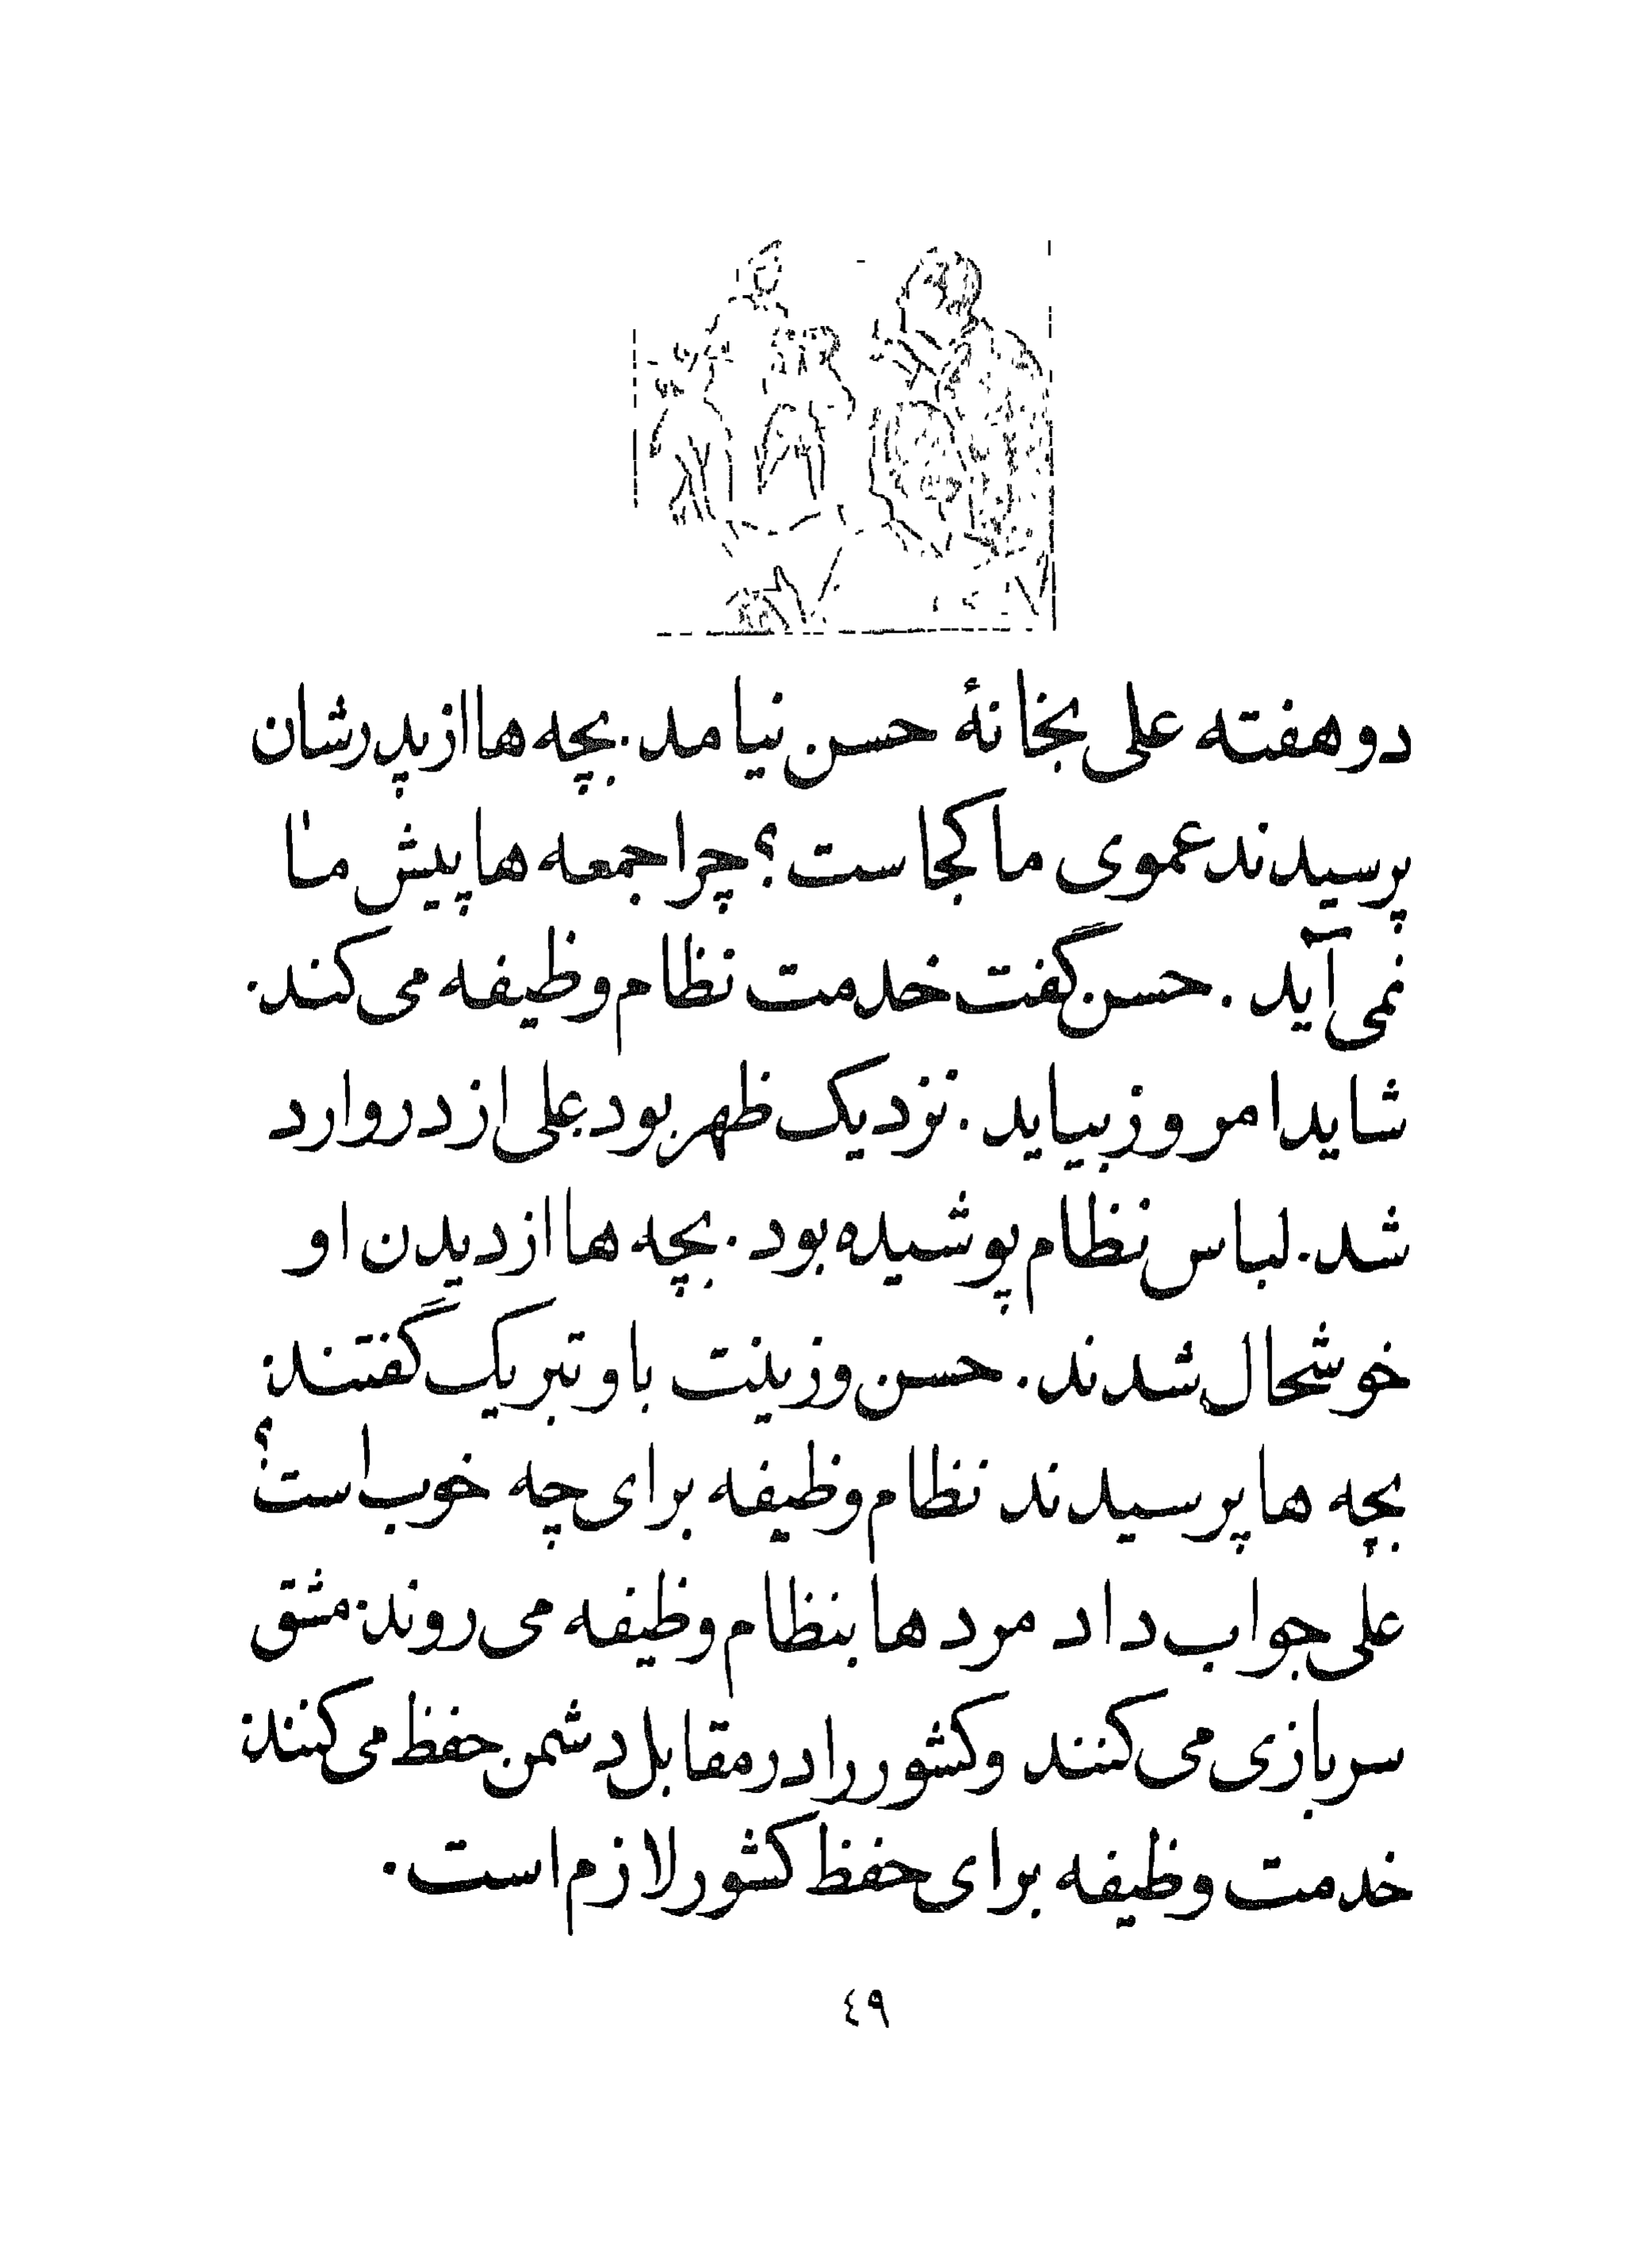 دو هفته علی بخانهٔ حسن نیامد. بچه ها از پدرشان
پرسیدند عموی ما کجاست؟ چرا جمعه ها پیش ما
نمی آید . حسن گفت خدمت نظام وظیفه می کند.
شاید امروز بیاید . نزدیک ظهر بود علی از در وارد
شد. لباس نظام پوشیده بود . بچه ها از دیدن او
خوشحال شدند. حسن و زینت باو تبریک گفتند.
بچه ها پرسیدند نظام وظیفه برای چه خوب است؟
علی جواب داد مرد ها بنظام وظیفه می روند. مشق
سربازی می کنند و کشور را در مقابل دشمن حفظ می کنند.
خدمت وظیفه برای حفظ کشور لازم است.
٤٩